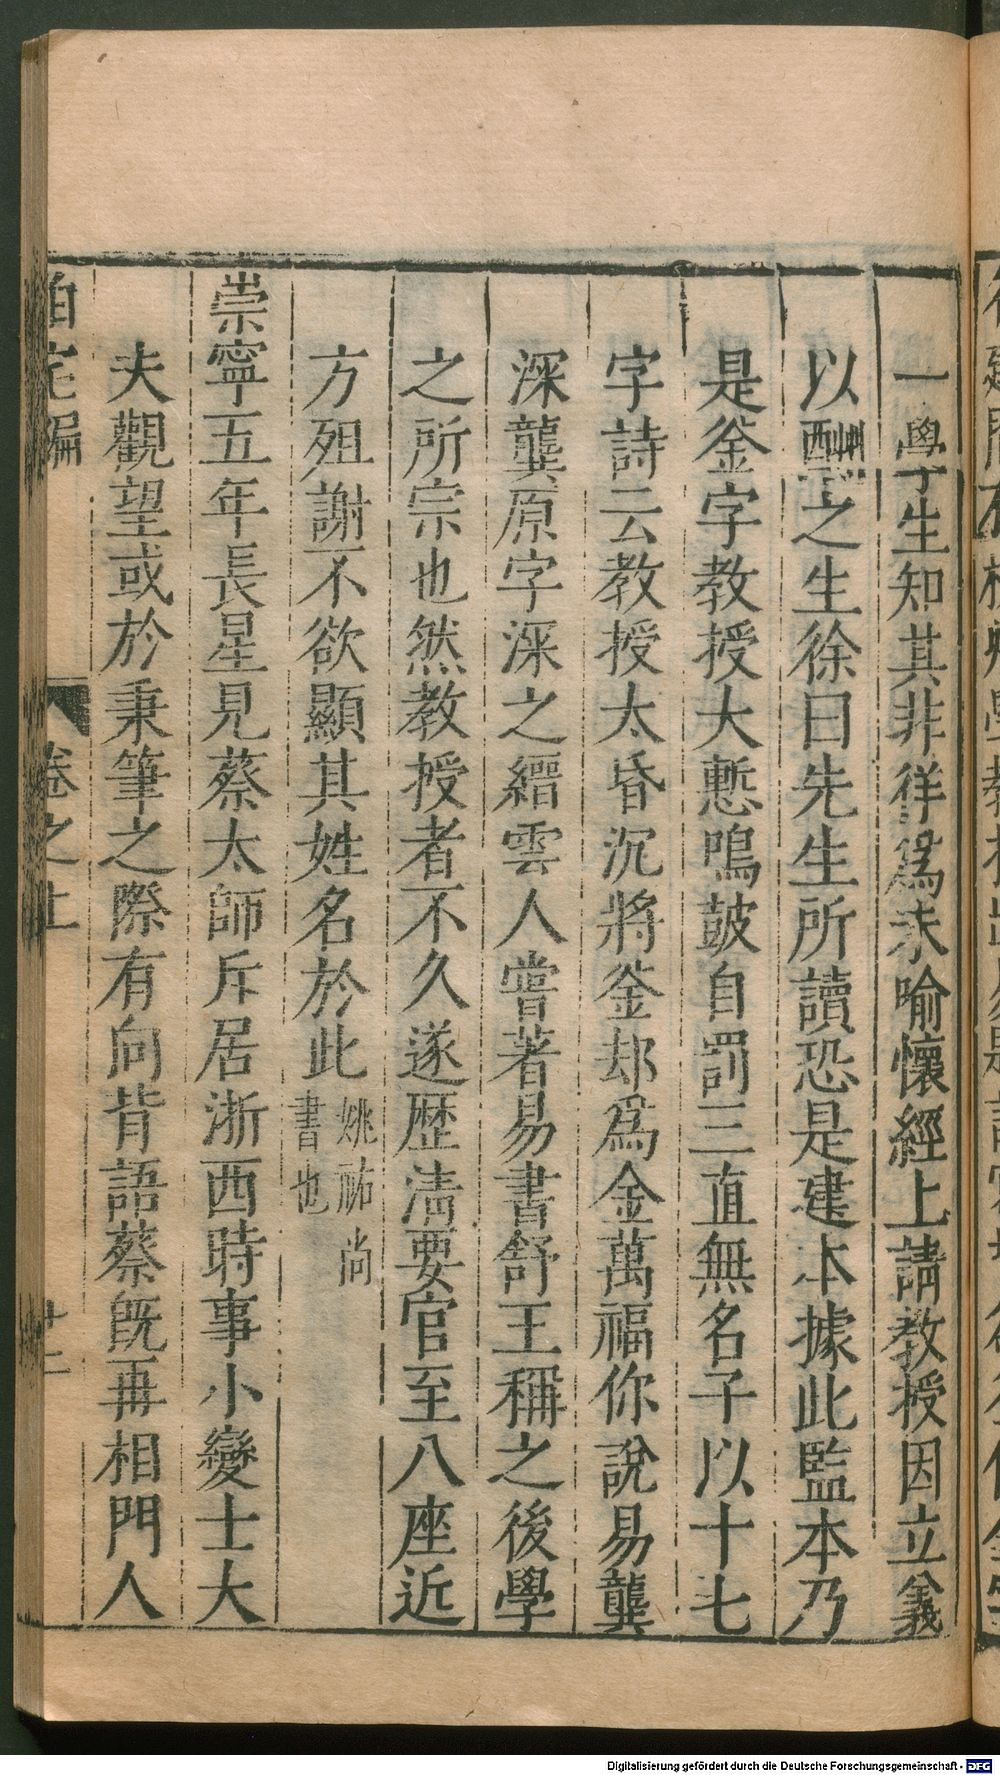 一學生知其非徉爲未喻懷經上請教授因立義
以酬之生徐曰先生所讀恐是建本據此監本乃
是釜字教授大慙鳴鼓自罰三直無名子以十七
字詩云教授太昏沉將釜却爲金萬福你說易龔
深龔原字深之縉雲人嘗著易書舒王稱之後學
之所宗也然教授者不久遂歷清要官至八座近
方殂謝不欲顯其姓名於此姚祐尚書也
崇寧五年長星見蔡太師斥居浙西時事小變士大
夫觀望或於秉筆之際有向背語蔡既再相門人
泊宅編 卷之上 廿二
Digitalisierung gefördert durch die Deutsche Forschungsgemeinschaft - DFG